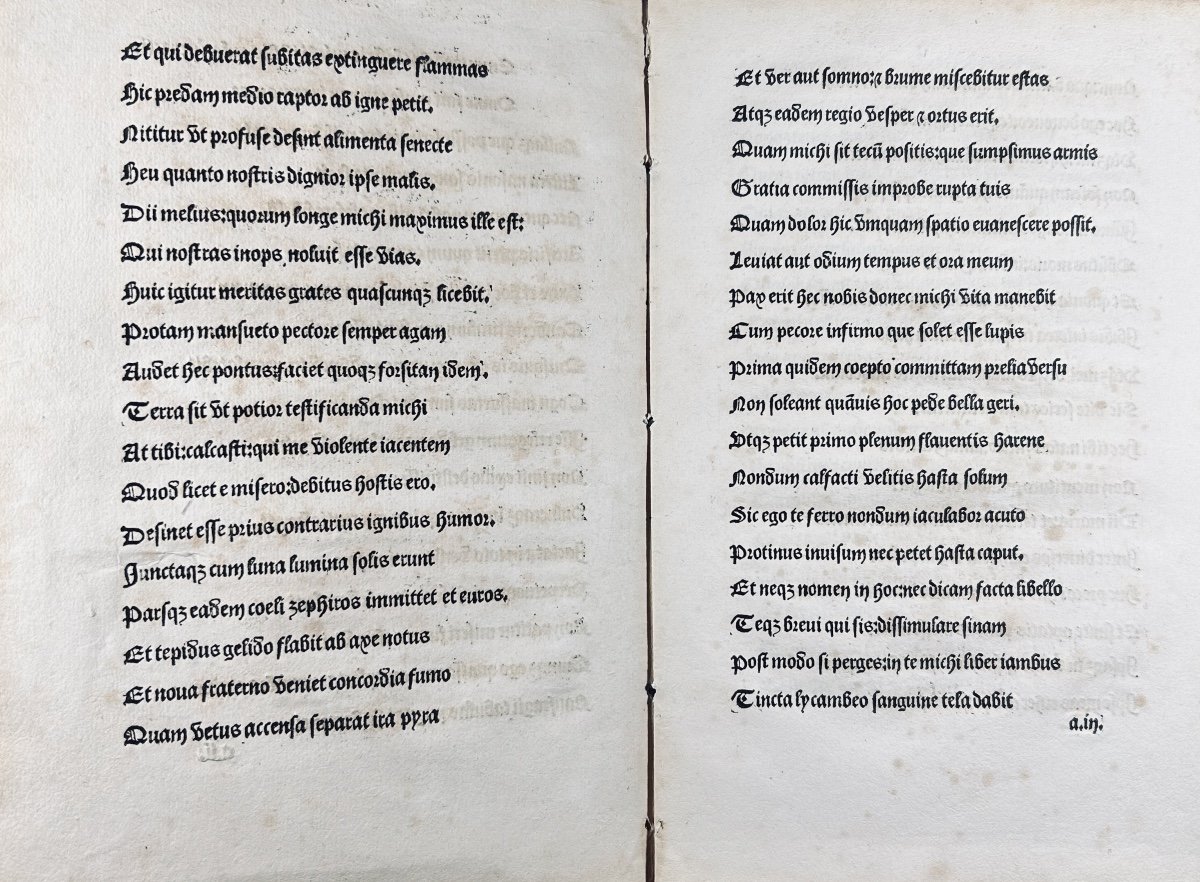 Et qui debuerat subitas extinguere flammas
Hic predam medio raptor ab igne petit.
Nititur vt profuse desint alimenta senecte
Heu quanto nostris dignior ipse malis.
Dii melius:quorum longe michi maximus ille est:
Qui nostras inops noluit esse vias.
Huic igitur meritas grates quascunqꝫ licebit.
Protam mansueto pectore semper agam
Audet hec pontus:faciet quoqꝫ forsitan idem.
Terra sit vt potior testificanda michi
At tibi:calcasti:qui me violente iacentem
Quod licet e misero:debitus hostis ero.
Desinet esse prius contrarius ignibus humor.
Junctaqꝫ cum luna lumina solis erunt
Parsqꝫ eadem coeli zephiros immittet et euros.
Et tepidus gelido flabit ab axe notus
Et noua fraterno veniet concordia fumo
Quam vetus accensa separat ira pyra
Et ver aut somno:ꝛ brume miscebitur estas
Atqꝫ eadem regio vesper ꝛ ortus erit.
Quam michi sit tecū positis:que sumpsimus armis
Gratia commissis improbe rupta tuis
Quam dolor hic vmquam spatio euanescere possit.
Leuiat aut odium tempus et ora meum
Pax erit hec nobis donec michi vita manebit
Cum pecore infirmo que solet esse lupis
Prima quidem coepto committam prelia versu
Non soleant quāuis hoc pede bella geri.
Vtqꝫ petit primo plenum flauentis harene
Nondum calfacti velitis hasta solum
Sic ego te ferro nondum iaculabor acuto
Protinus inuisum nec petet hasta caput.
Et neqꝫ nomen in hoc:nec dicam facta libello
Teqꝫ breui qui sis:dissimulare sinam
Post modo si perges:in te michi liber iambus
Tincta lycambeo sanguine tela dabit
a.iii.